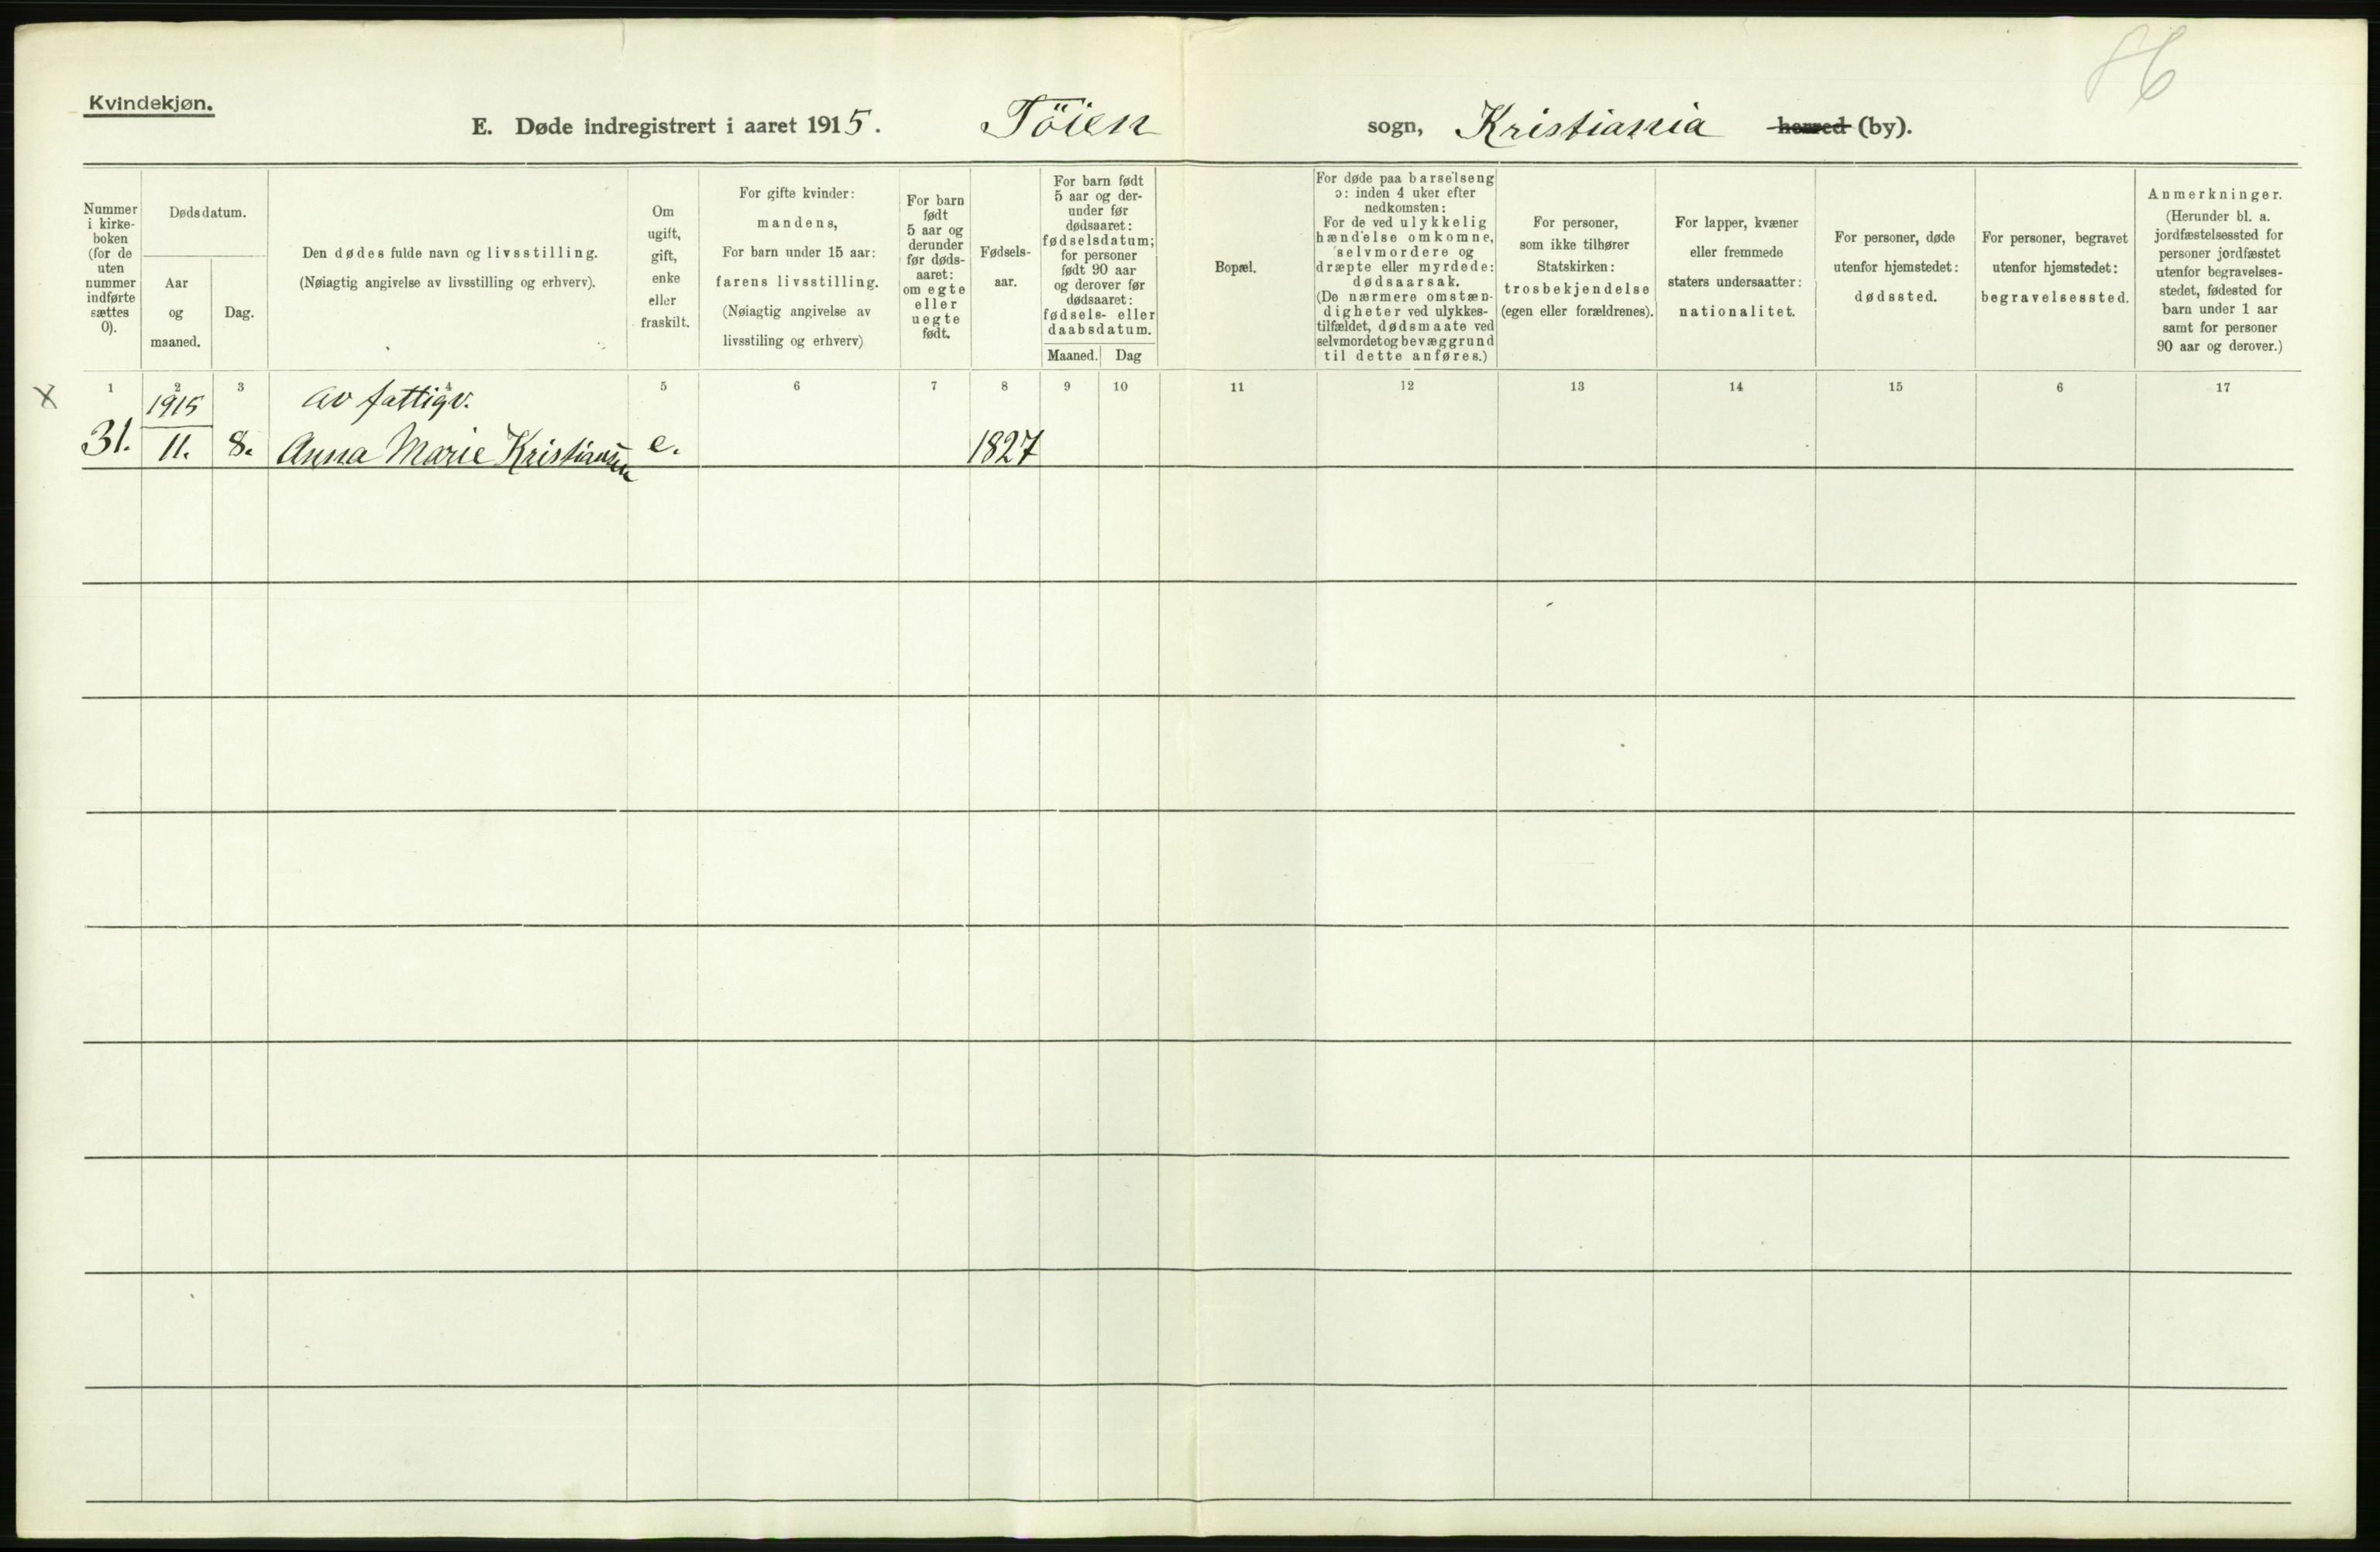 Kvindekjøn.
E. Døde indregistrert i aaret 1915. Töien sogn, Kristiania herred (by).
Nummer
i kirke-
boken
(for de
uten
nummer
indførte
sættes
0).
Dødsdatum.
Aar
og
maaned.
Dag.
Den dødes fulde navn og livsstilling.
(Nøiagtig angivelse av livsstilling og erhverv).
Om
ugift,
gift,
enke
eller
fraskilt.
For gifte kvinder:
mandens,
For barn under 15 aar:
farens livsstilling.
(Nøiagtig angivelse av
livsstiling og erhverv)
For barn
født
5 aar og
derunder
før døds-
aaret:
om egte
eller
uegte
født.
Fødsels-
aar.
For barn født
5 aar og der-
under før
dødsaaret:
fødselsdatum;
for personer
født 90 aar
og derover før
dødsaaret:
fødsels- eller
daabsdatum.
Maaned. Dag
Bopæl.
For døde paa barselseng
ɔ: inden 4 uker efter
nedkomsten:
For de ved ulykkelig
hændelse omkomne,
selvmordere og
dræpte eller myrdede:
dødsaarsak.
(De nærmere omstæn-
digheter ved ulykkes-
tilfældet, dødsmaate ved
selvmordet og bevæggrund
til dette anføres.)
For personer,
som ikke tilhører
Statskirken:
trosbekjendelse
(egen eller forældrenes).
For lapper, kvæner
eller fremmede
staters undersaatter:
nationalitet.
For personer, døde
utenfor hjemstedet:
dødssted.
For personer, begravet
utenfor hjemstedet:
begravelsessted.
Anmerkninger.
(Herunder bl. a.
jordfæstelsessted for
personer jordfæstet
utenfor begravelses-
stedet, fødested for
barn under 1 aar
samt for personer
90 aar og derover.)
1 2 3 4 5 6 7 8 9 10 11 12 13 14 15 6 17
x 1915 av fattigv.
31. 11. 8. Anna Marie Kristiansen e. 1827